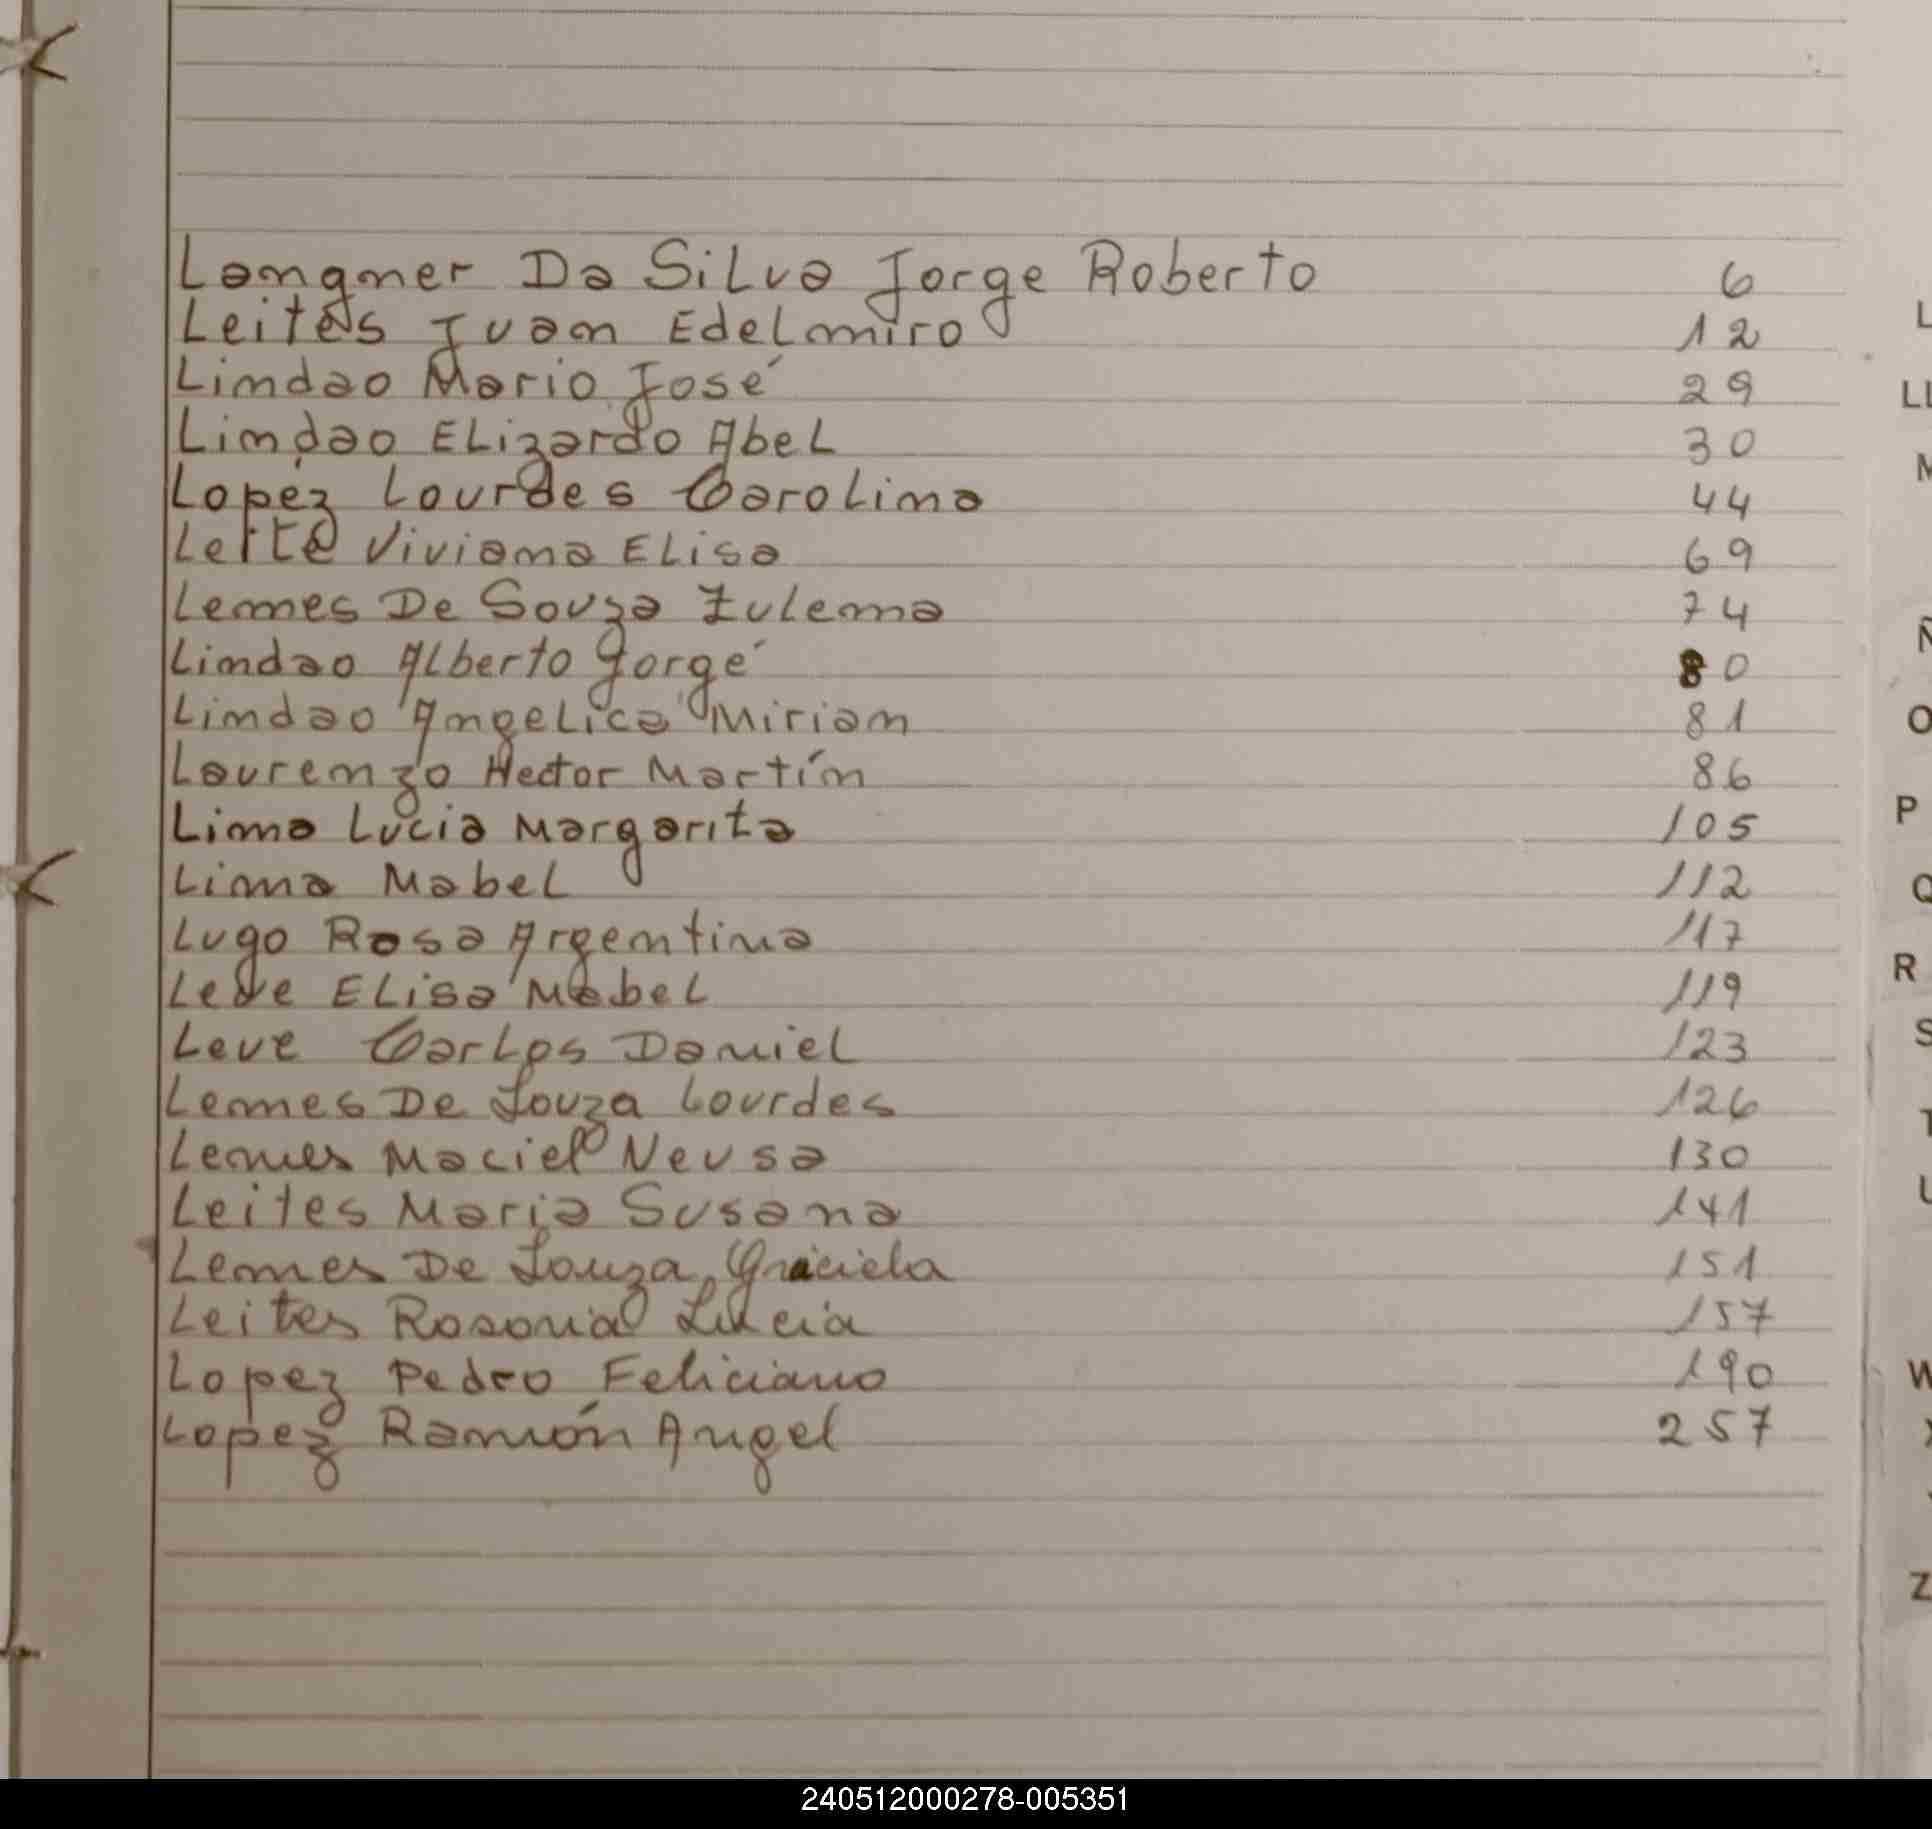 Langner Da Silva Jorge Roberto 6
Leites Juan Edelmiro 12
Lindao Mario José 29
Lindao Elizardo Abel 30
Lopez Lourdes Carolina 44
Leite Viviana Elisa 69
Lemes De Souza Zulema 74
Lindao Alberto Jorge 80
Lindao Angelica Miriam 81
Laurenzo Hector Martín 86
Lima Lucia Margarita 105
Lima Mabel 112
Lugo Rosa Argentina 117
Leve Elisa Mabel 119
Leve Carlos Daniel 123
Lemes De Souza Lourdes 126
Lemes Maciel Neusa 130
Leites Maria Susana 141
Lemes De Souza Graciela 151
Leites Rosona Lucia 157
Lopez Pedro Feliciano 190
Lopez Ramón Angel 257
L
LL
M
Ñ
O
P
Q
R
S
T
U
W
X
Z
240512000278-005351